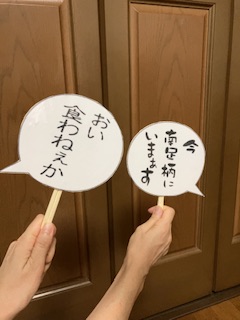 おい
食わねぇか
今
南足柄に
いまぁす